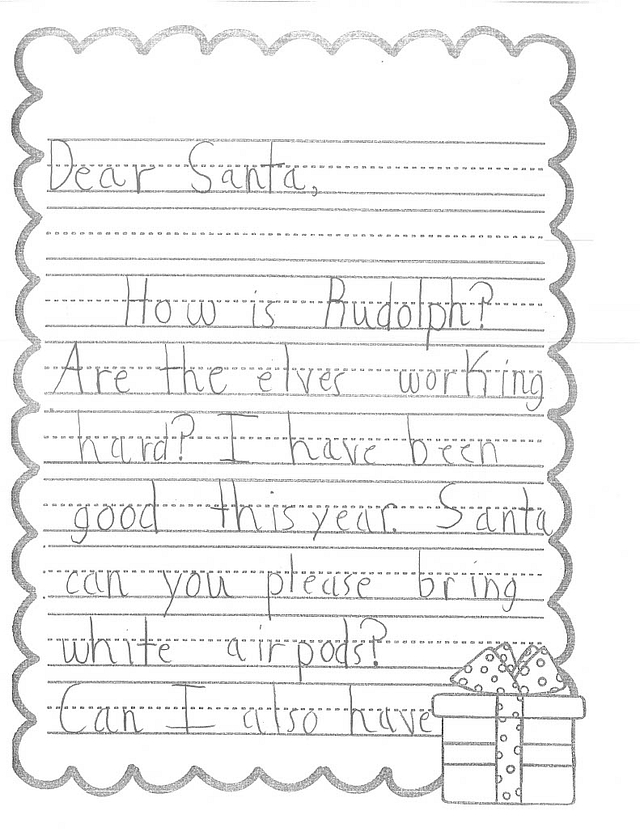 Dear Santa,
How is Rudolph?
Are the elves working
hard? I have been
good this year. Santa
can you please bring
white airpods?
Can I also have